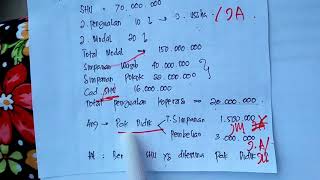 SHU = 70.000.000
J. Penjualan 10 % → J. Usaha / JA
J. Modal 20 %
Total Modal → 150.000.000
Simpanan Wajib 40.000.000
Simpanan Pokok 50.000.000
Cad. SHU 16.000.000
Total penjualan koperasi = 20.000.000
Ang → Pak Didik T. Simpanan 1.500.000
JM
Pembelian 3.000.000
JA/
SHU yg diterima Pak Didik